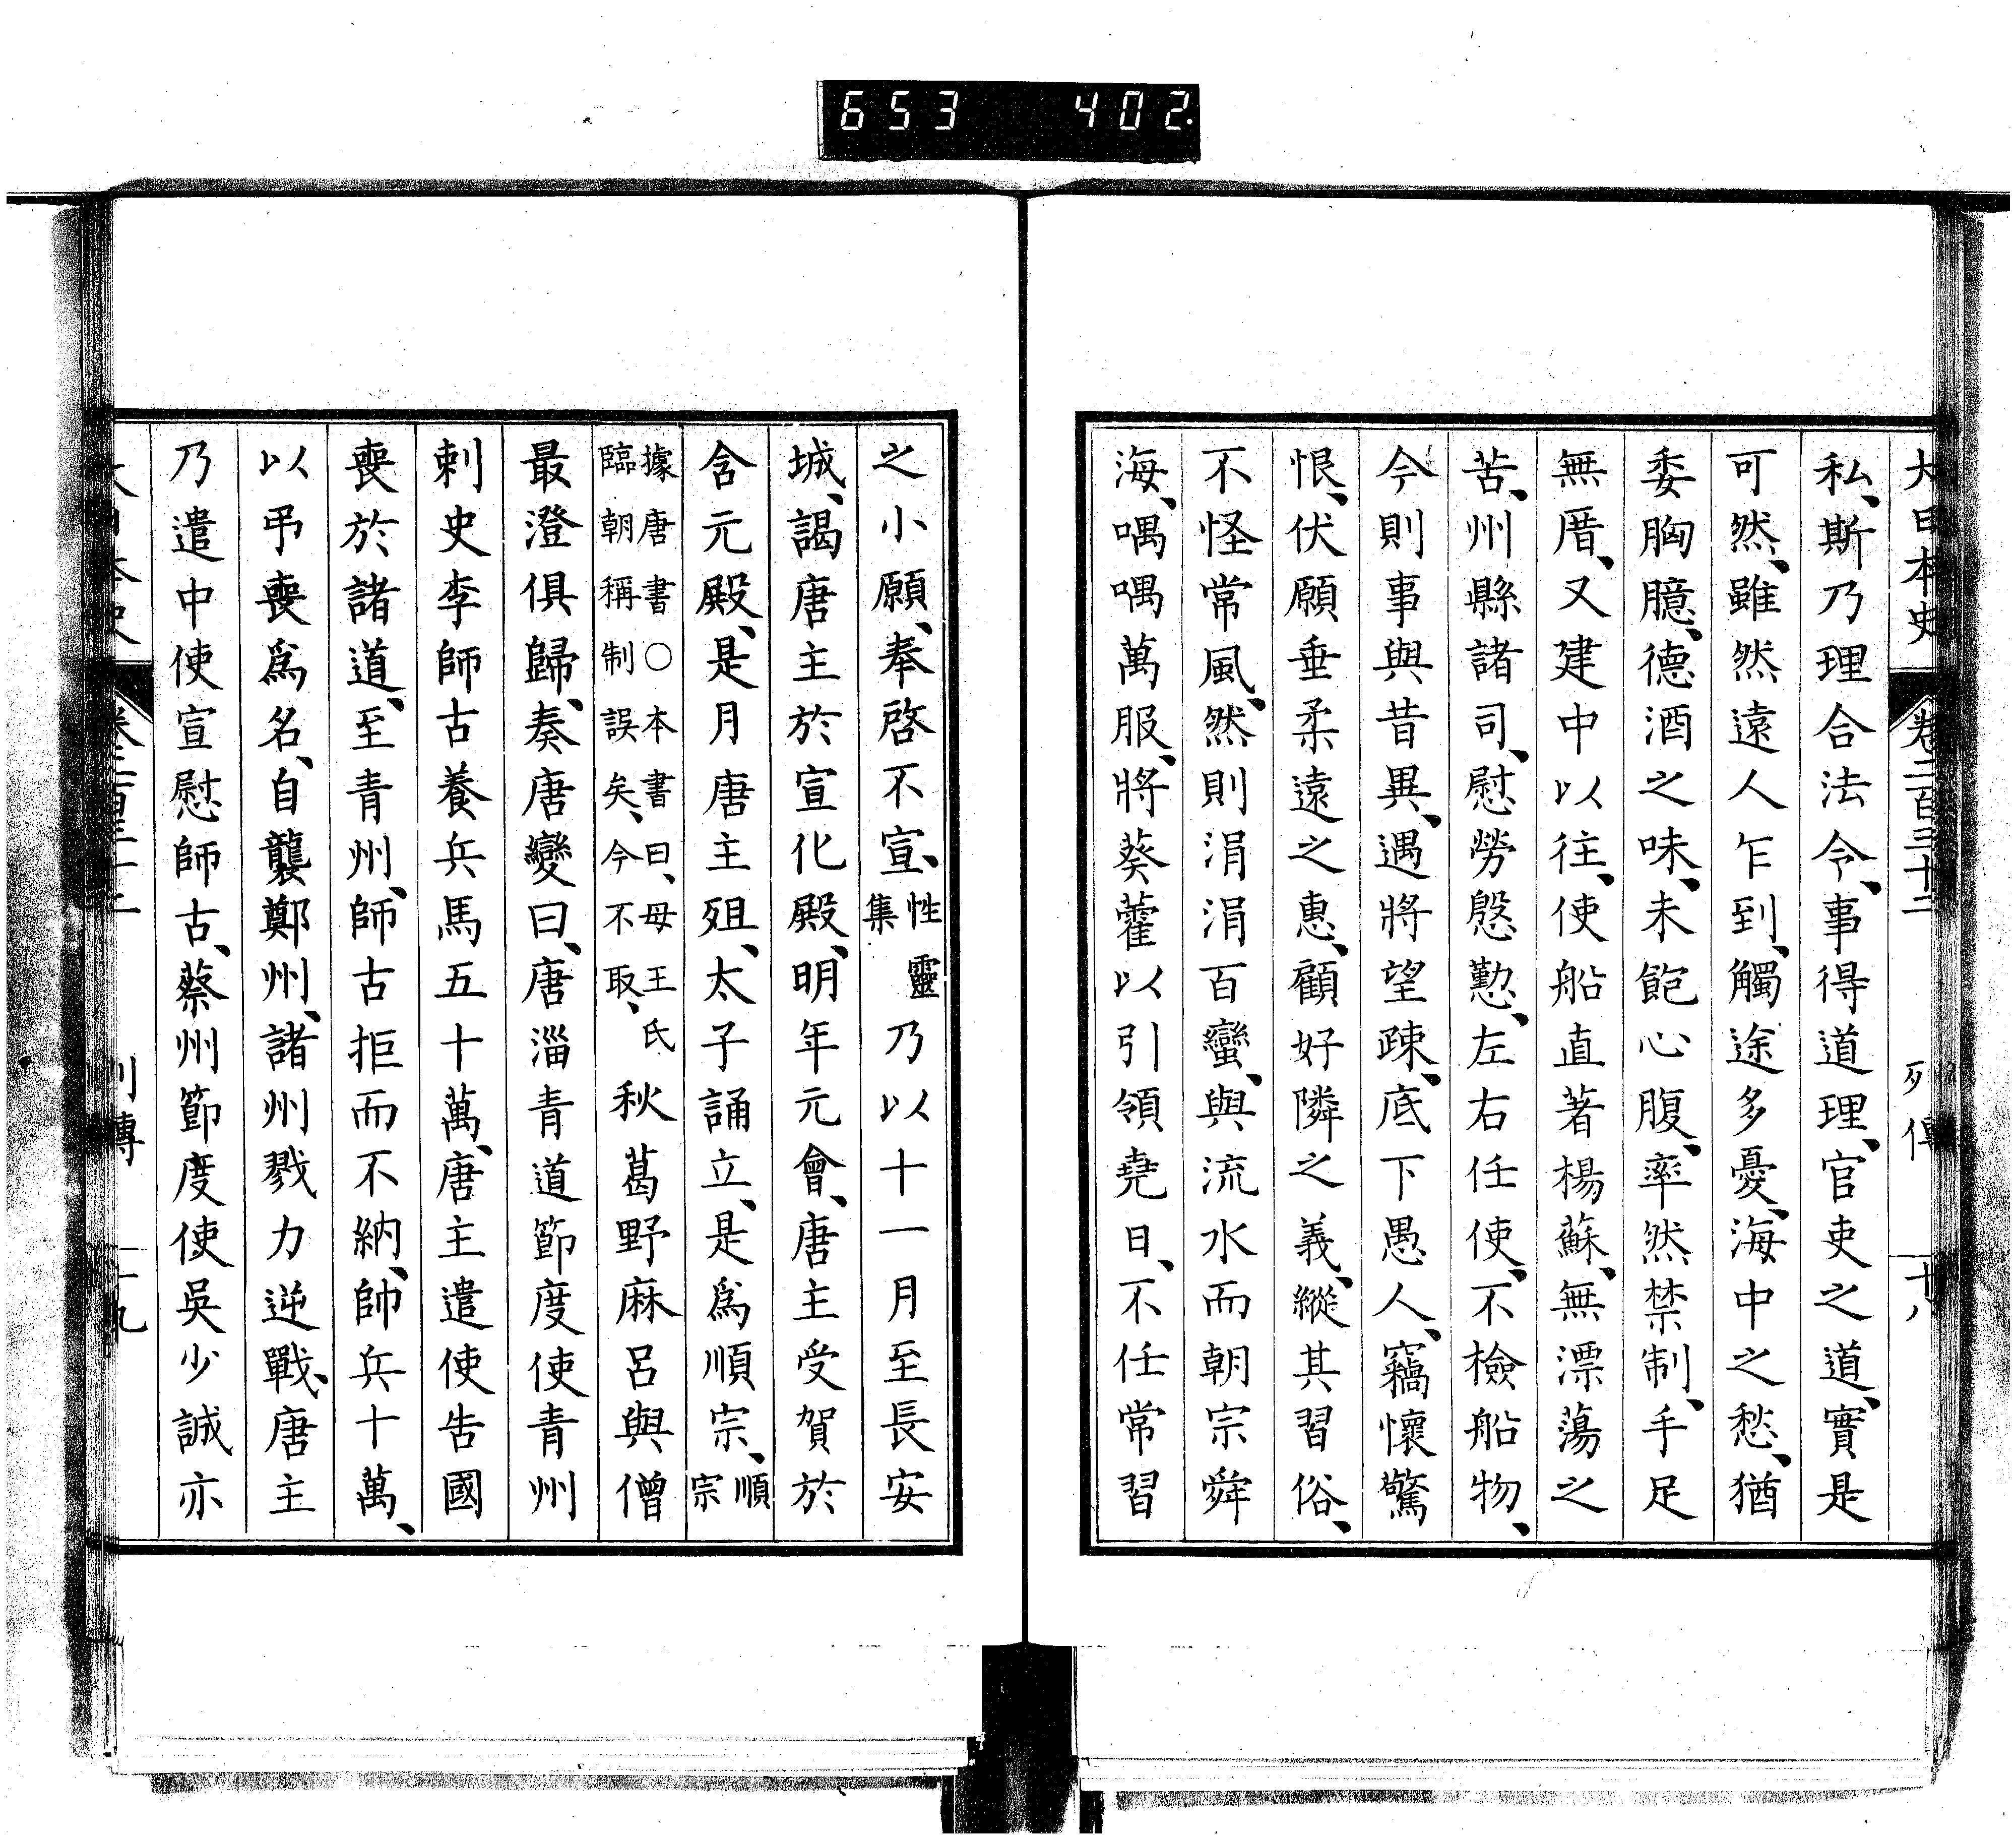 653 402
大日本史 卷二百三十二 列傳 十八
私、斯乃理合法令、事得道理、官吏之道、實是
可然、雖然遠人乍到、觸途多憂、海中之愁、猶
委胸臆、德酒之味、未飽心腹、率然禁制、手足
無厝、又建中以往、使船直著楊蘇、無漂蕩之
苦、州縣諸司、慰勞慇懃、左右任使、不檢船物、
今則事與昔異、遇將望疎、底下愚人、竊懷驚
恨、伏願垂柔遠之惠、顧好隣之義、縱其習俗、
不怪常風、然則涓涓百蠻、與流水而朝宗舜
海、喁喁萬服、將葵藿以引領堯日、不任常習
之小願、奉啓不宣、性靈集乃以十一月至長安
城、謁唐主於宣化殿、明年元會、唐主受賀於
含元殿、是月唐主殂、太子誦立、是爲順宗、順宗
據唐書○本書曰、母王氏臨朝稱制誤矣、今不取、秋葛野麻呂與僧
最澄俱歸、奏唐變曰、唐淄青道節度使青州
刺史李師古養兵馬五十萬、唐主遣使告國
喪於諸道、至青州、師古拒而不納、帥兵十萬、
以弔喪爲名、自襲鄭州、諸州戮力逆戰、唐主
乃遣中使宣慰師古、蔡州節度使吳少誠亦
大日本史 卷二百三十二 列傳 十九